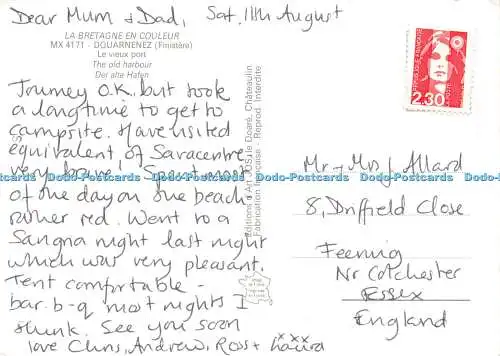 Dear Mum & Dad, Sat. 11th August
LA BRETAGNE EN COULEUR
MX 4171 - DOUARNENEZ (Finistère)
Le vieux port
The old harbour
Der alte Hafen
Journey O.K. but took
a long time to get to
campsite. Have visited
equivalent of Savacentre
very brave! Spent most
of the day on the beach
rather red. Went to a
Sangria night last night
which was very pleasant.
Tent comfortable -
bar-b-q most nights I
think. See you soon
love Chris, Andrew, Ross & Laura
xxx
Editions d'Art JOS Le Doaré, Châteaulin
Fabrication française - Reprod. Interdite
REPUBLIQUE FRANÇAISE
2,30
Mr & Mrs J Allard
8, Driffield Close
Feering
Nr Colchester
Essex
England
Dodo-Postcards Dodo-Postcards Dodo-Postcards Dodo-Postcards